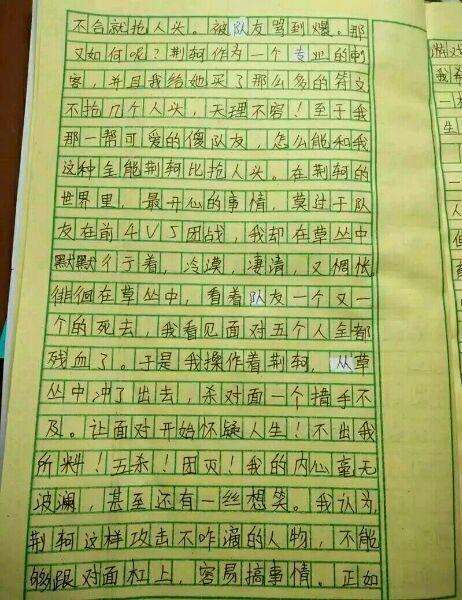 不合就抢人头。被队友骂到爆，那
又如何呢？荆轲作为一个专业的刺
客，并且我给她买了那么多的符文
不抢几个人头，天理不容！至于我
那一帮可爱的傻队友，怎么能和我
这种全能荆轲比抢人头。在荆轲的
世界里，最开心的事情，莫过于队
友在前4V5团战，我却在草丛中
默默彳亍着，冷漠，凄清，又惆怅
徘徊在草丛中，看着队友一个又一
个的死去，我看见面对五个人全都
残血了。于是我操作着荆轲，从草
丛中冲了出去，杀对面一个措手不
及。让面对开始怀疑人生！不出我
所料！五杀！团灭！我的内心毫无
波澜，甚至还有一丝想笑。我认为，
荆轲这样攻击不咋滴的人物，不能
够跟对面杠上，容易搞事情。正如
情对
我
一
生